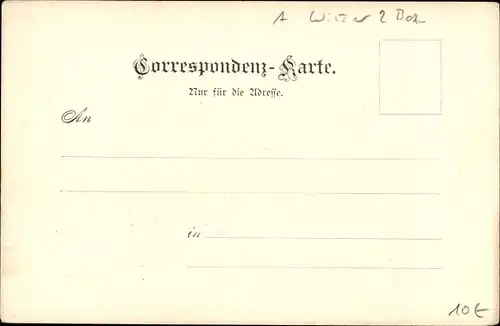 A Wiener 2 Bah
Correspondenz-Karte.
Nur für die Adresse.
An
in
10€